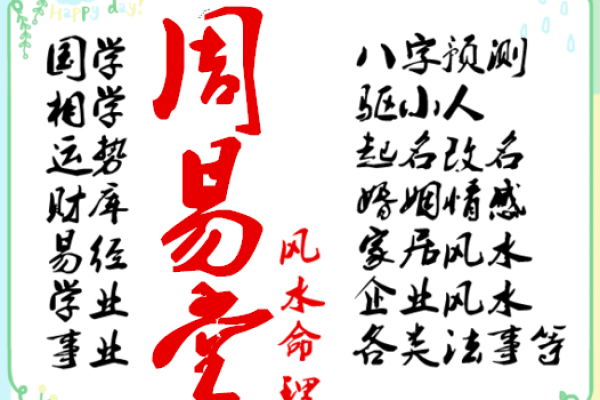 Happy day!
国学
相学
运势
财库
易经
学业
事业
周易堂
风水命理
八字预测
驱小人
起名改名
婚姻情感
家居风水
企业风水
各类法事等